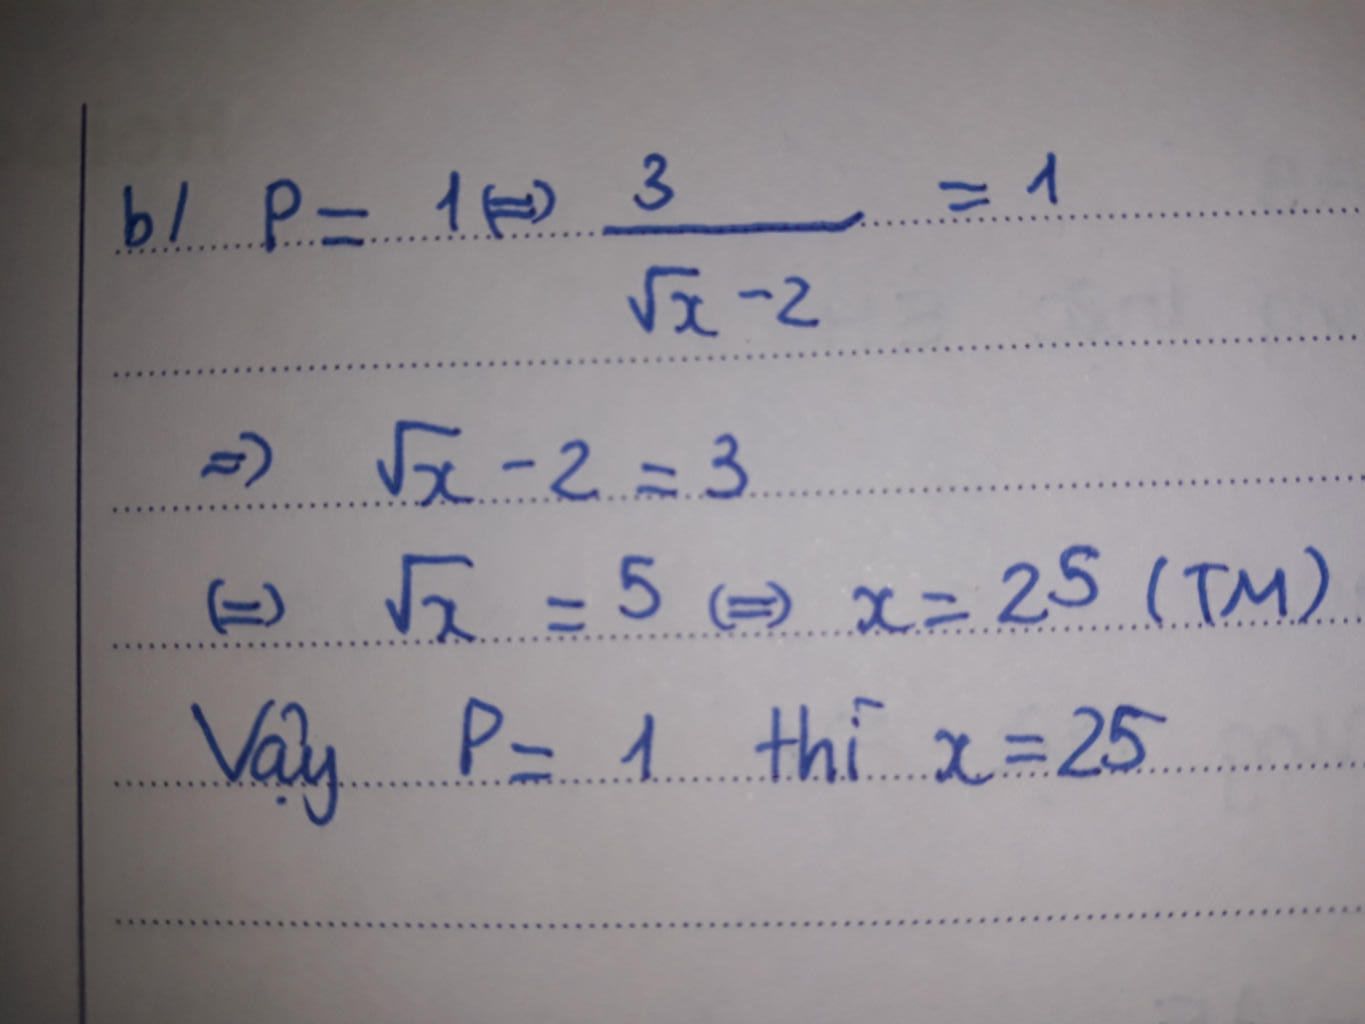 b/ P = 1 (=) 3/(√x - 2) = 1
=) √x - 2 = 3
(=) √x = 5 (=) x = 25 (TM)
Vậy P = 1 thì x = 25